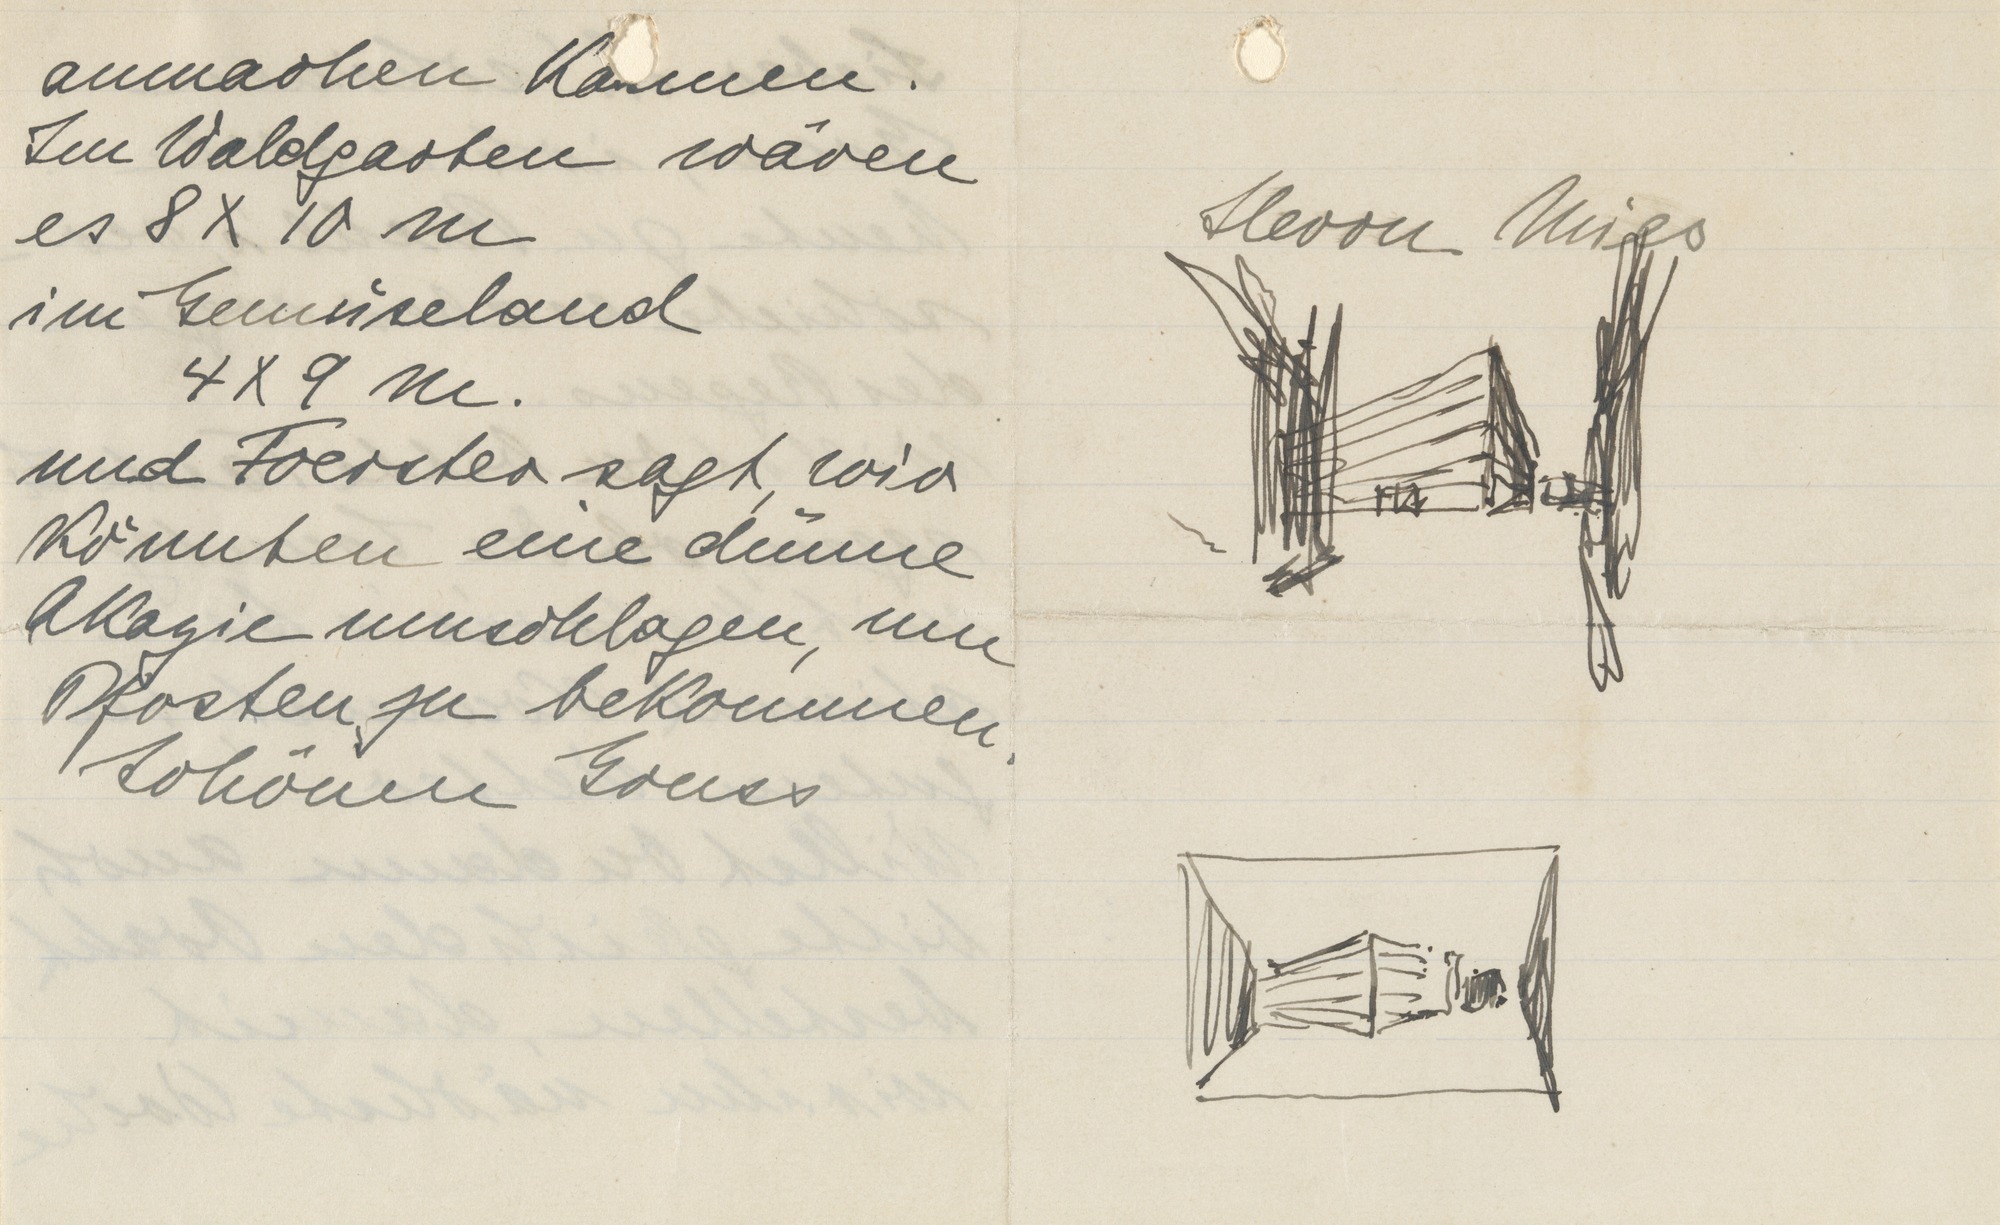 anmachen Können.
Im Waldgarten wären
es 8 X 10 m
im Gemüseland
4 X 9 m.
und Foerster sagt, wir
Könnten eine dünne
Akazie umschlagen, um
Pfosten zu beKommen.
Schönen Gruss
Herrn Mies